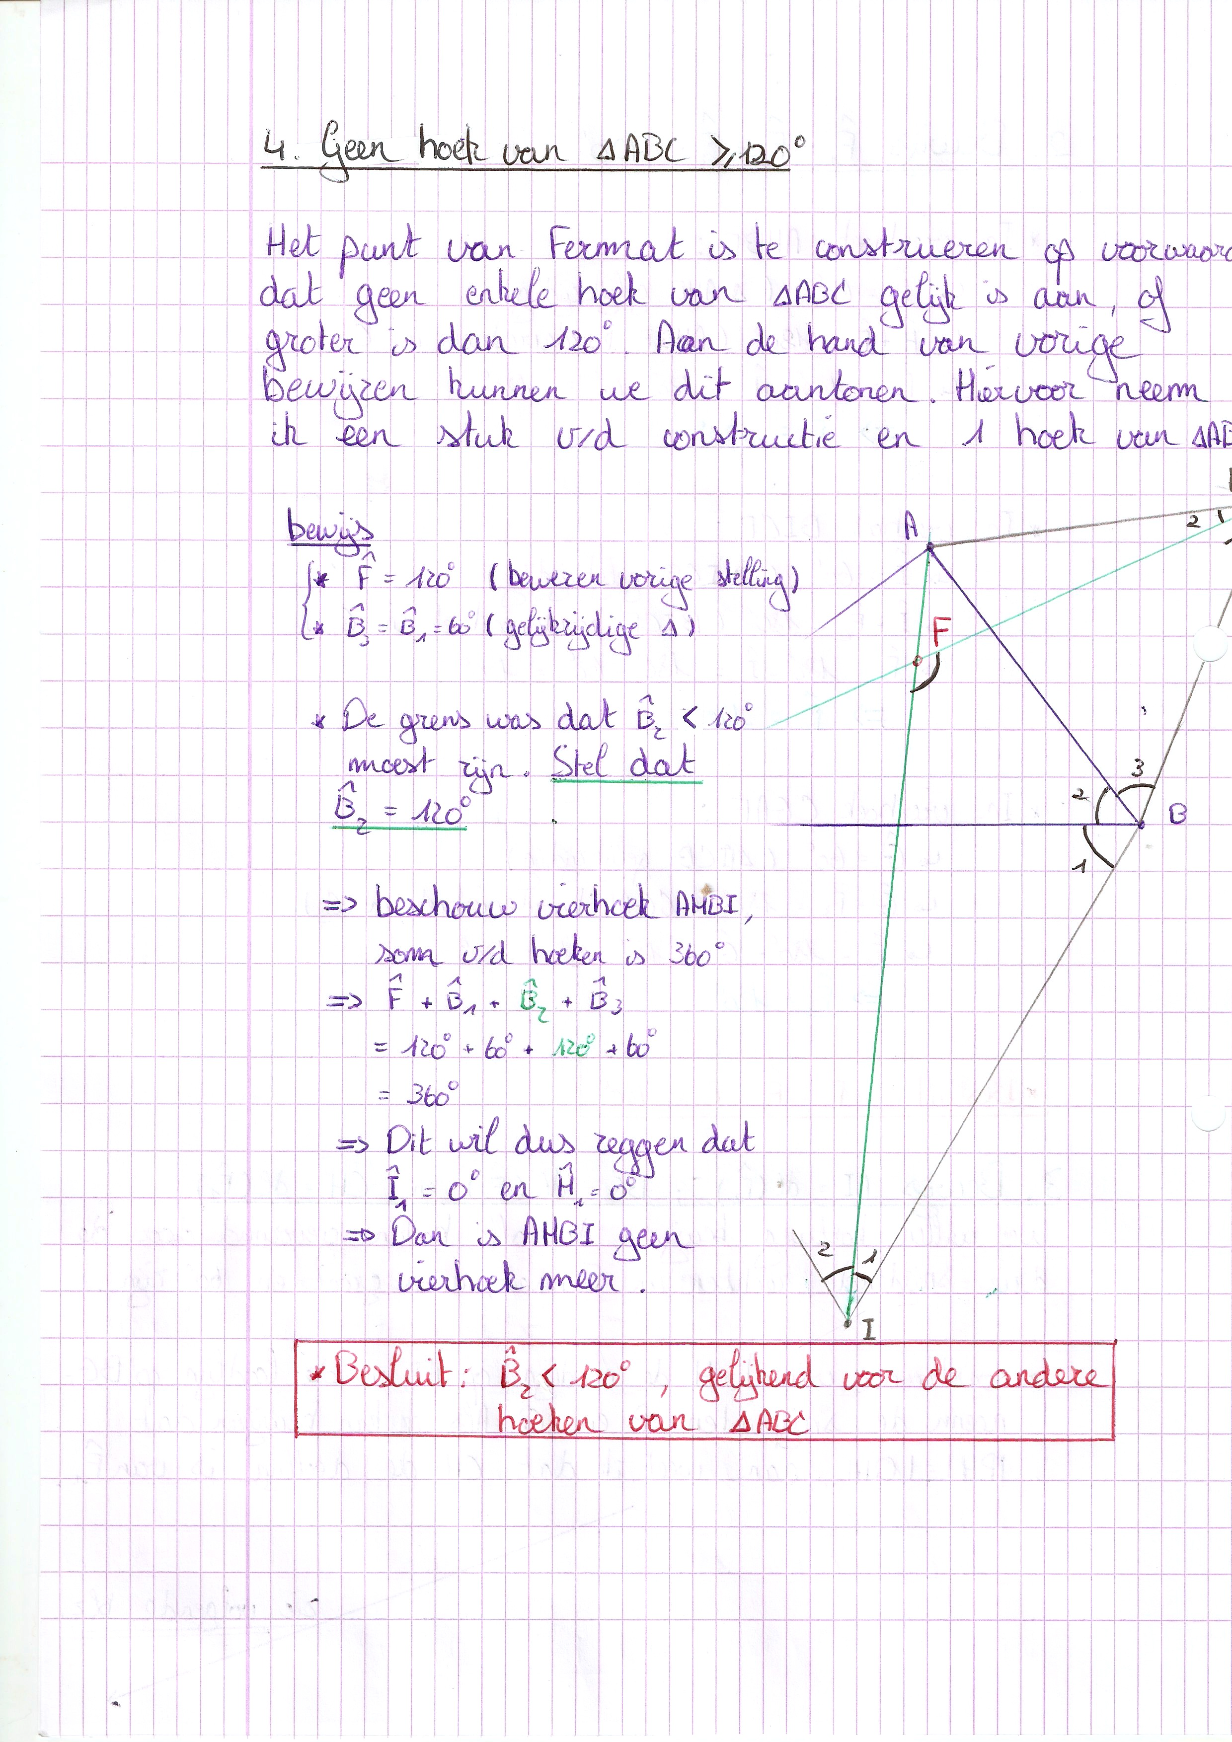 4. Geen hoek van ΔABC ⩾ 120°
Het punt van Fermat is te construeren op voorwaar
dat geen enkele hoek van ΔABC gelijk is aan, of
groter is dan 120°. Aan de hand van vorige
bewijzen kunnen we dit aantonen. Hiervoor neem
ik een stuk v/d constructie en 1 hoek van ΔAB
bewijs
* F̂ = 120° (bewezen vorige stelling)
* B̂₃ = B̂₁ = 60° (gelijkzijdige Δ)
* De grens was dat B̂₂ < 120°
moest zijn. Stel dat
B̂₂ = 120°
=> beschouw vierhoek AHBI,
som v/d hoeken is 360°
=> F̂ + B̂₁ + B̂₂ + B̂₃
= 120° + 60° + 120° + 60°
= 360°
=> Dit wil dus zeggen dat
Î₁ = 0° en Ĥ₁ = 0°
=> Dan is AHBI geen
vierhoek meer.
A
2 1
F
3
2
B
1
2 1
I
* Besluit: B̂₂ < 120°, gelijkend voor de andere
hoeken van ΔABC